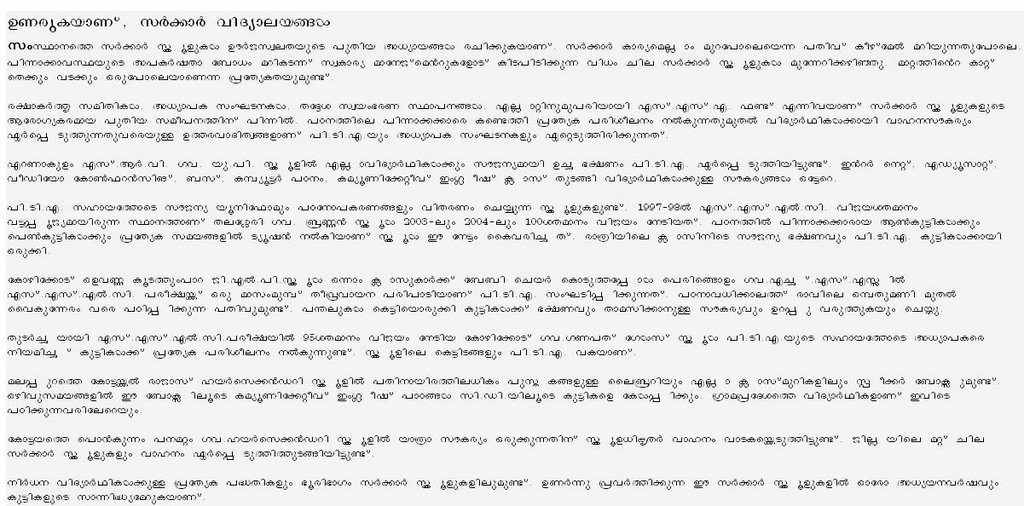 ഉണരുകയാണ്, സർക്കാർ വിദ്യാലയങ്ങൾ
സംസ്ഥാനത്തെ സർക്കാർ സ്കൂളുകൾ ഊർജസ്വലതയുടെ പുതിയ അധ്യായങ്ങൾ രചിക്കുകയാണ്. സർക്കാർ കാര്യമെല്ലാം മുറപോലെയെന്ന പതിവ് കീഴ്മേൽ മറിയുന്നതുപോലെ.
പിന്നാക്കാവസ്ഥയുടെ അപകർഷതാ ബോധം മറികടന്ന് സ്വകാര്യ മാനേജ്മെന്റുകളോട് കിടപിടിക്കുന്ന വിധം ചില സർക്കാർ സ്കൂളുകൾ മുന്നേറിക്കഴിഞ്ഞു. മാറ്റത്തിൻെറ കാറ്റ്
തെക്കും വടക്കും ഒരുപോലെയാണെന്ന പ്രത്യേകതയുമുണ്ട്.
രക്ഷാകർത്തൃ സമിതികൾ, അധ്യാപക സംഘടനകൾ, തദ്ദേശ സ്വയംഭരണ സ്ഥാപനങ്ങൾ, എല്ലാറ്റിനുമുപരിയായി എസ്.എസ്.എ. ഫണ്ട് എന്നിവയാണ് സർക്കാർ സ്കൂളുകളുടെ
ആരോഗ്യകരമായ പുതിയ സമീപനത്തിന് പിന്നിൽ. പഠനത്തിലെ പിന്നാക്കക്കാരെ കണ്ടെത്തി പ്രത്യേക പരിശീലനം നൽകുന്നതുമുതൽ വിദ്യാർഥികൾക്കായി വാഹനസൗകര്യം
ഏർപ്പെടുത്തുന്നതുവരെയുള്ള ഉത്തരവാദിത്വങ്ങളാണ് പി.ടി.എ.യും അധ്യാപക സംഘടനകളും ഏറ്റെടുത്തിരിക്കുന്നത്.
എറണാകുളം എസ്.ആർ.വി. ഗവ. യു.പി. സ്കൂളിൽ എല്ലാവിദ്യാർഥികൾക്കും സൗജന്യമായി ഉച്ചഭക്ഷണം പി.ടി.എ. ഏർപ്പെടുത്തിയിട്ടുണ്ട്. ഇൻറർ നെറ്റ്, എഡ്യൂസാറ്റ്,
വീഡിയോ കോൺഫറൻസിങ്, ബസ്, കമ്പ്യൂട്ടർ പഠനം, കമ്യൂണിക്കേറ്റീവ് ഇംഗ്ലീഷ് ക്ലാസ് തുടങ്ങി വിദ്യാർഥികൾക്കുള്ള സൗകര്യങ്ങൾ ഒട്ടേറെ.
പി.ടി.എ. സഹായത്തോടെ സൗജന്യ യൂനിഫോമും പഠനോപകരണങ്ങളും വിതരണം ചെയ്യുന്ന സ്കൂളുകളുണ്ട്. 1997-98ൽ എസ്.എസ്.എൽ.സി. വിജയശതമാനം
വട്ടപ്പൂജ്യമായിരുന്ന സ്ഥാനത്താണ് തലശ്ശേരി ഗവ. ബ്രണ്ണൻ സ്കൂൾ 2003-ലും 2004-ലും 100ശതമാനം വിജയം നേടിയത്. പഠനത്തിൽ പിന്നാക്കക്കാരായ ആൺകുട്ടികൾക്കും
പെൺകുട്ടികൾക്കും പ്രത്യേക സമയങ്ങളിൽ ട്യൂഷൻ നൽകിയാണ് സ്കൂൾ ഈ നേട്ടം കൈവരിച്ചത്. രാത്രിയിലെ ക്ലാസിനിടെ സൗജന്യ ഭക്ഷണവും പി.ടി.എ. കുട്ടികൾക്കായി
ഒരുക്കി.
കോഴിക്കോട് ഒളവണ്ണ കൂടത്തുംപാറ ജി.എൽ.പി.സ്കൂൾ ഒന്നാം ക്ലാസുകാർക്ക് ബേബി ചെയർ കൊടുത്തപ്പോൾ പെരിങ്ങൊളം ഗവ.എച്ച്.എസ്.എസ്സിൽ
എസ്.എസ്.എൽ.സി. പരീക്ഷയ്ക്ക് ഒരു മാസംമുമ്പ് തീവ്രവായന പരിപാടിയാണ് പി.ടി.എ. സംഘടിപ്പിക്കുന്നത്. പഠനാവധിക്കാലത്ത് രാവിലെ ഒമ്പതുമണി മുതൽ
വൈകുന്നേരം വരെ പഠിപ്പിക്കുന്ന പതിവുമുണ്ട്. പന്തലുകൾ കെട്ടിയൊരുക്കി കുട്ടികൾക്ക് ഭക്ഷണവും താമസിക്കാനുള്ള സൗകര്യവും ഉറപ്പു വരുത്തുകയും ചെയ്തു.
തുടർച്ചയായി എസ്.എസ്.എൽ.സി.പരീക്ഷയിൽ 95ശതമാനം വിജയം നേടിയ കോഴിക്കോട് ഗവ.ഗണപത് ഗേൾസ് സ്കൂൾ പി.ടി.എ.യുടെ സഹായത്തോടെ അധ്യാപകരെ
നിയമിച്ച് കുട്ടികൾക്ക് പ്രത്യേക പരിശീലനം നൽകുന്നുണ്ട്. സ്കൂളിലെ കെട്ടിടങ്ങളും പി.ടി.എ. വകയാണ്.
മലപ്പുറത്തെ കോട്ടയ്ക്കൽ രാജാസ് ഹയർസെക്കൻഡറി സ്കൂളിൽ പതിനായിരത്തിലധികം പുസ്തകങ്ങളുള്ള ലൈബ്രറിയും എല്ലാ ക്ലാസ്മുറികളിലും സ്പീക്കർ ബോക്സുമുണ്ട്.
ഒഴിവുസമയങ്ങളിൽ ഈ ബോക്സിലൂടെ കമ്യൂണിക്കേറ്റീവ് ഇംഗ്ലീഷ് പാഠങ്ങൾ സി.ഡി.യിലൂടെ കുട്ടികളെ കേൾപ്പിക്കും. ഗ്രാമപ്രദേശത്തെ വിദ്യാർഥികളാണ് ഇവിടെ
പഠിക്കുന്നവരിലേറെയും.
കോട്ടയത്തെ പൊൻകുന്നം പനമറ്റം ഗവ.ഹയർസെക്കൻഡറി സ്കൂളിൽ യാത്രാ സൗകര്യം ഒരുക്കുന്നതിന് സ്കൂളധികൃതർ വാഹനം വാടകയ്ക്കെടുത്തിട്ടുണ്ട്. ജില്ലയിലെ മറ്റ് ചില
സർക്കാർ സ്കൂളുകളും വാഹനം ഏർപ്പെടുത്തിത്തുടങ്ങിയിട്ടുണ്ട്.
നിർധന വിദ്യാർഥികൾക്കുള്ള പ്രത്യേക പദ്ധതികളും ഭൂരിഭാഗം സർക്കാർ സ്കൂളുകളിലുമുണ്ട്. ഉണർന്നു പ്രവർത്തിക്കുന്ന ഈ സർക്കാർ സ്കൂളുകളിൽ ഓരോ അധ്യയനവർഷവും
കുട്ടികളുടെ സാന്നിദ്ധ്യമേറുകയാണ്.